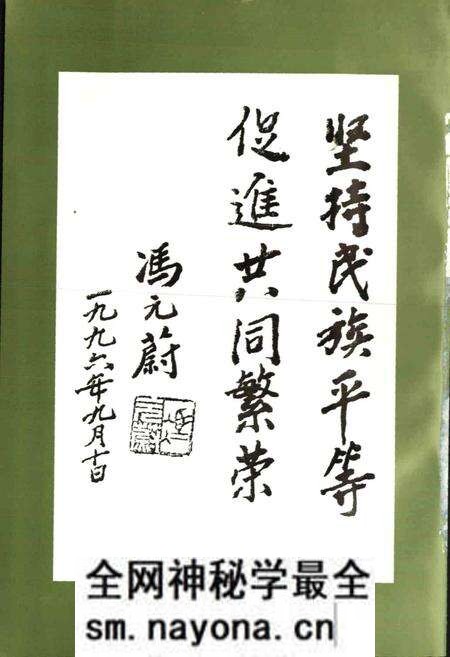 坚持民族平等
促進共同繁荣
冯元蔚
一九九六年九月十日
全网神秘学最全
sm.nayona.cn